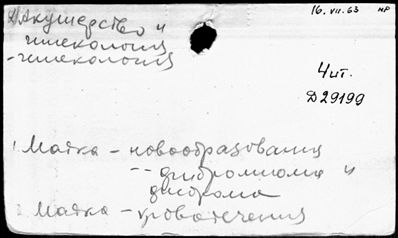 16.VII.63 нр
Акушерство и
гинекология
- гинекология
Чит.
Д29199
1. Матка - новообразования
-"- фибромиома и
фиброма
2. Матка - кровотечения